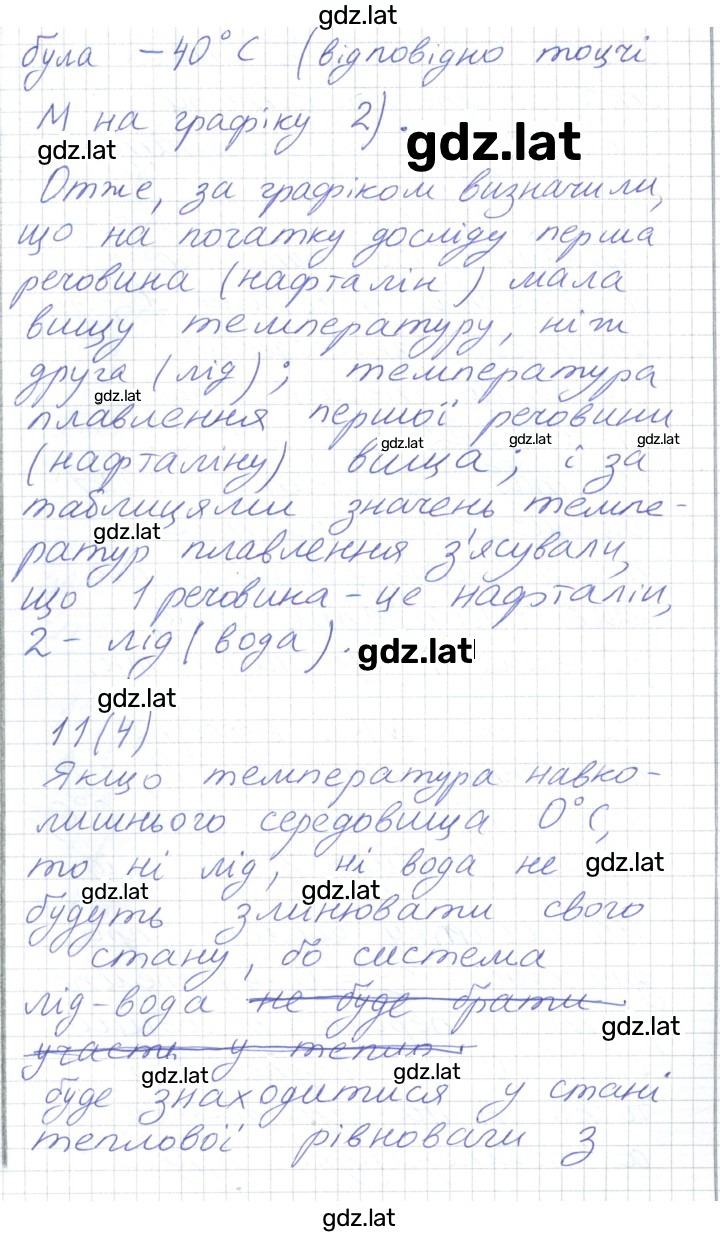 gdz.lat
була -40°С (відповідно точці
М на графіку 2).
gdz.lat
gdz.lat
Отже, за графіком визначили,
що на початку досліду перша
речовина (нафталін) мала
вищу температуру, ніж
друга (лід); температура
gdz.lat
плавлення першої речовини
gdz.lat gdz.lat gdz.lat
(нафталіну) вища; і за
таблицями значень темпе-
gdz.lat
ратур плавлення з'ясували,
що 1 речовина - це нафталін,
2 - лід (вода).
gdz.lat
gdz.lat
11(4)
Якщо температура навко-
лишнього середовища 0°С,
то ні лід, ні вода не
gdz.lat
gdz.lat gdz.lat
будуть змінювати свого
стану, бо система
лід-вода не буде брати
gdz.lat
участь у тепл
gdz.lat gdz.lat
буде знаходитися у стані
теплової рівноваги з
gdz.lat